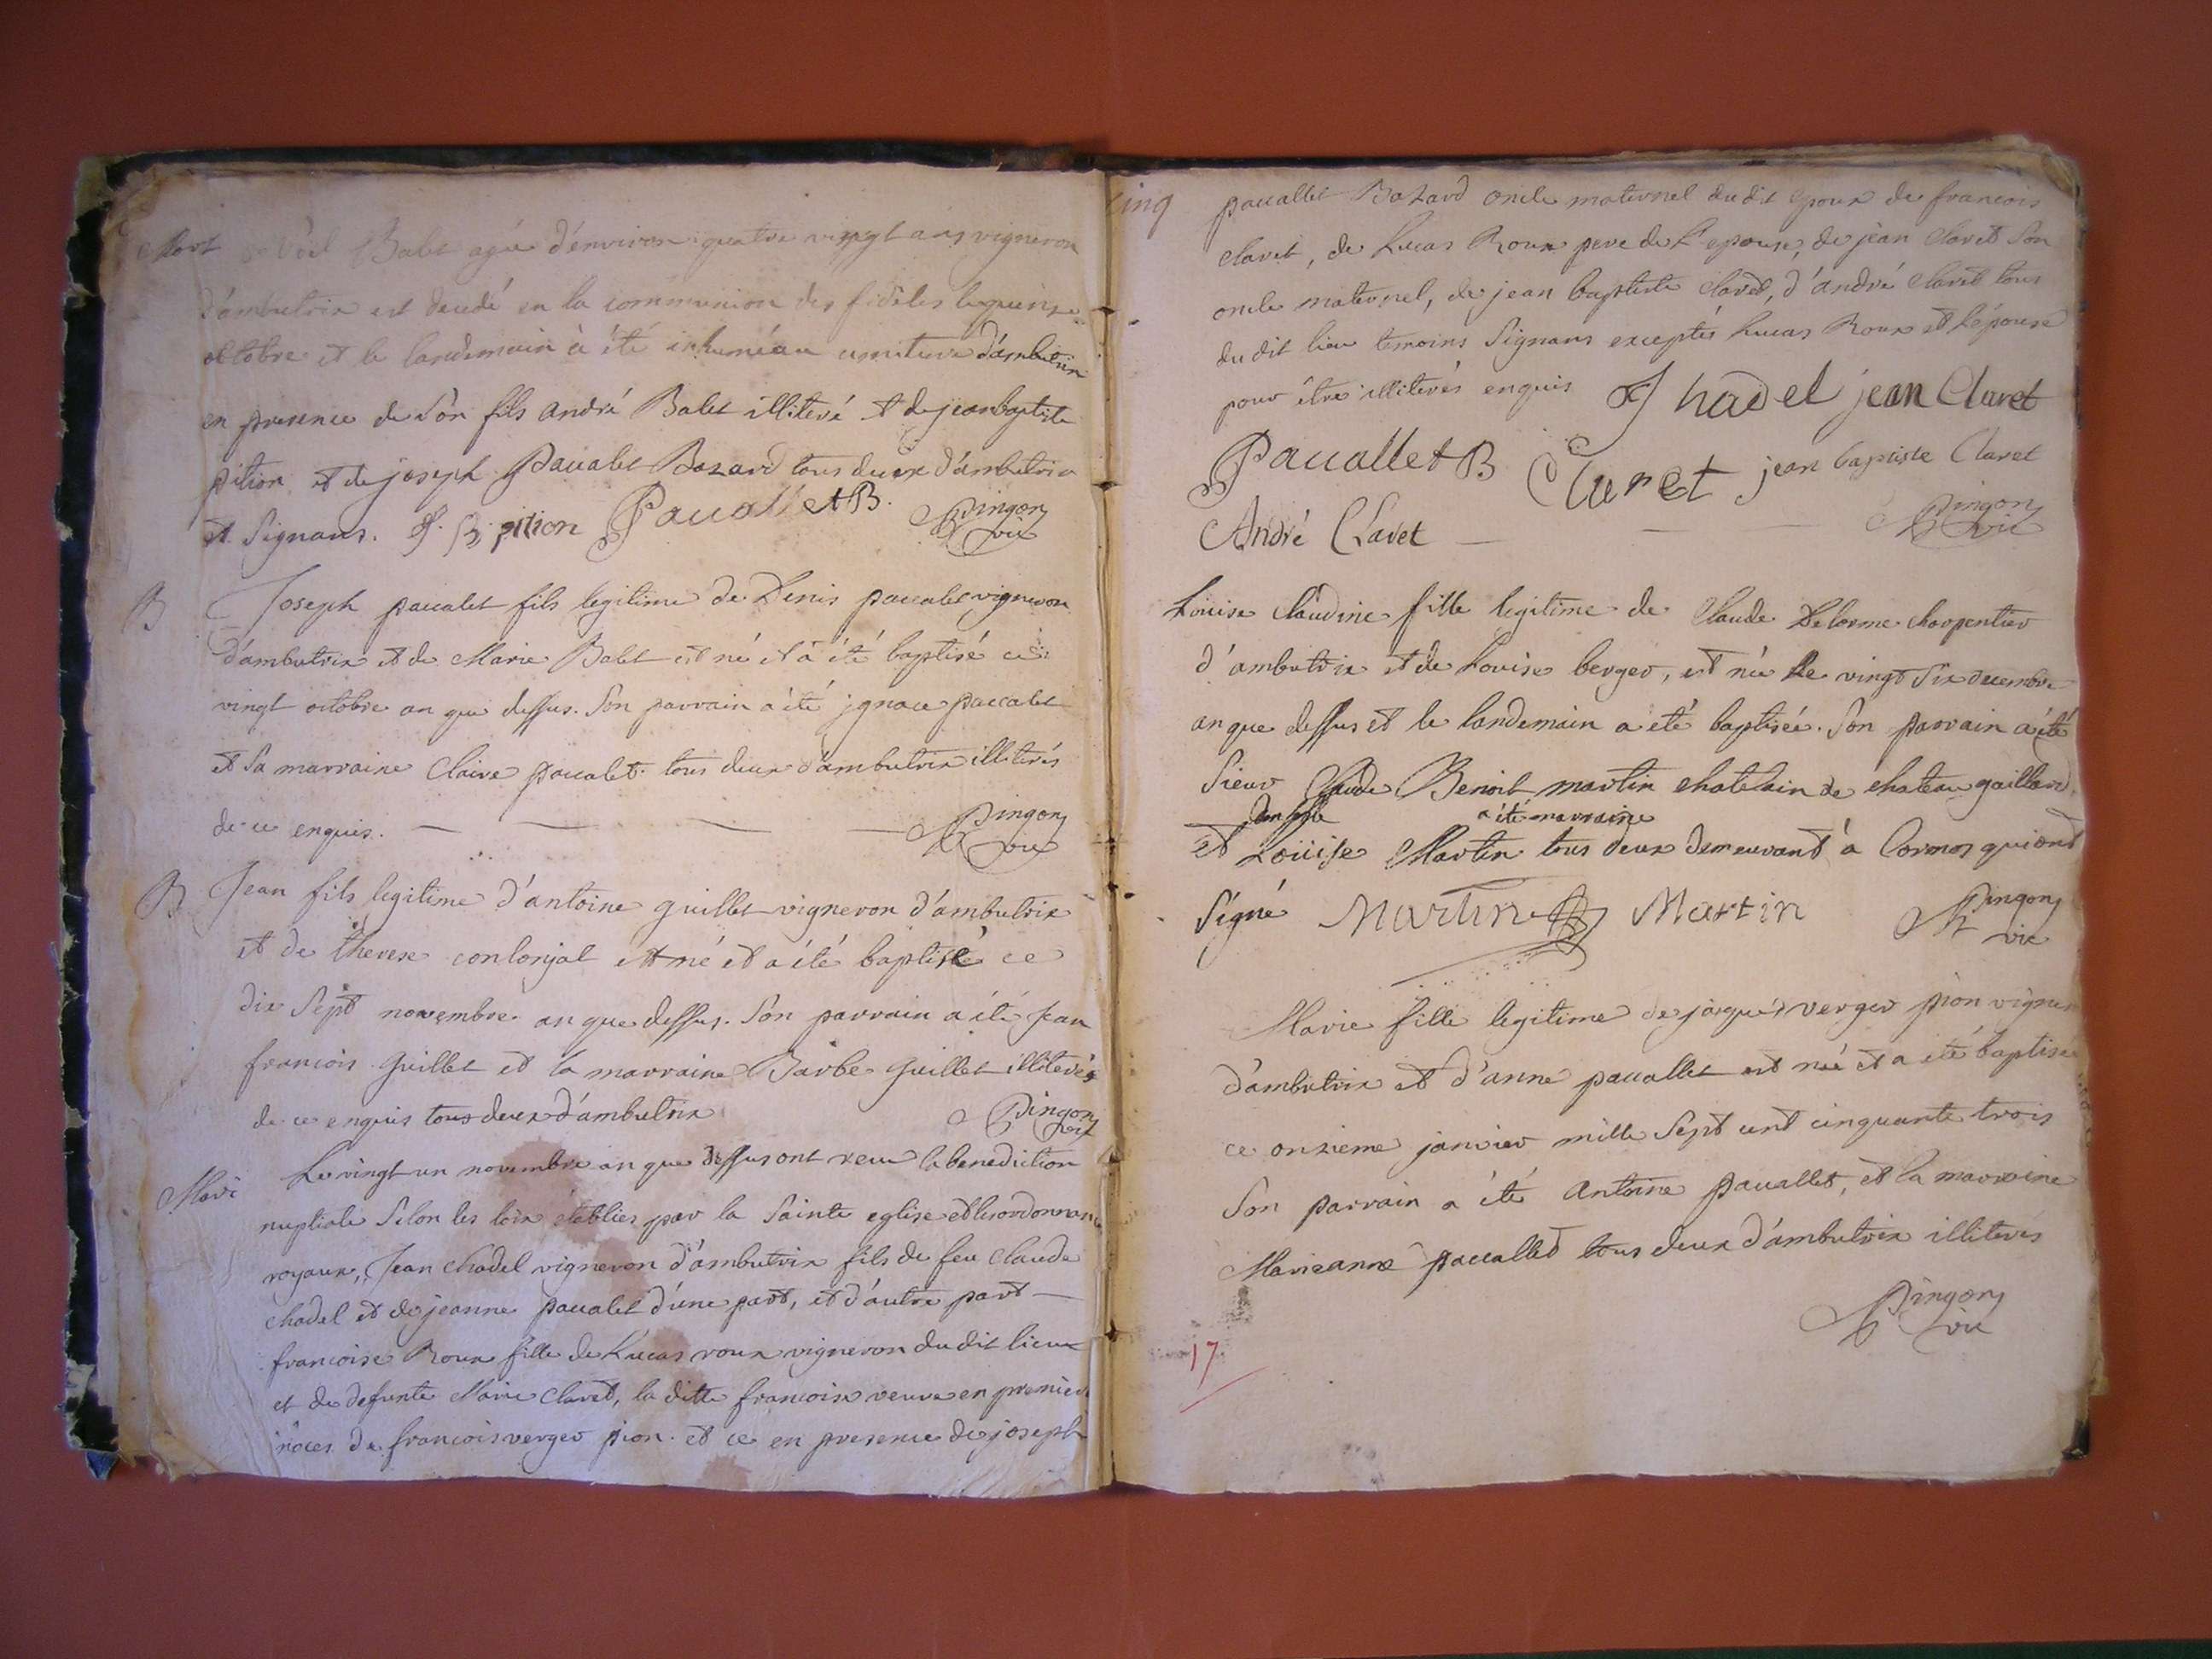 Mort Noel Balet agé d'environ quatre vingt ans vigneron
d'ambutrix est decedé en la communion des fidèles le quinze
octobre et le landemain à été inhumé au cimetiere d'ambutrix
en presence de son fils andré Balet illiteré et de jean baptiste
pition et de joseph paccalet Bazard tous deux d'ambutrix
et Signans. J. B. pition Paccallet B. Pingon
vic
B Joseph paccalet fils legitime de Denis paccalet vigneron
d'ambutrix et de Marie Balet est né et à été baptisé ce
vingt octobre an que dessus. Son parrain a été jgnace paccalet
et Sa marraine Claire paccalet tous deux d'ambutrix illiterés
de ce enquis. Pingon
vic
B Jean fils legitime d'antoine guillet vigneron d'ambutrix
et de therese conlonjat est né et a été baptisé ce
dix Sept novembre an que dessus. Son parrain a été Jean
francois guillet et la marraine Barbe guillet illiterés
de ce enquis tous deux d'ambutrix Pingon
vic
Mari Le vingt un novembre an que dessus ont receu la benediction
nuptiale Selon les loix établies par la Sainte eglise et les ordonnances
royaux, Jean Chadel vigneron d'ambutrix fils de feu Claude
chadel et de jeanne paccalet d'une part, et d'autre part
francoise Roux fille de Lucas roux vigneron du dit lieux
et de defunte Marie Claret, la ditte francoise veuve en premiere
nôces de francois verger pion. et ce en presence de joseph
cinq
paccallet Bazard oncle maternel du dit epoux de francois
claret, de Lucas Roux pere de L'epouse, de jean claret Son
oncle maternel, de jean baptiste claret, d'andré claret tous
du dit lieu temoins Signans exceptés Lucas Roux et L'épouse
pour être illiterés enquis J hadel jean Claret
Paccallet B Claret jean baptiste Claret
André Claret Pingon
vic
Louise Claudine fille legitime de Claude Delorme charpentier
d'ambutrix et de Louise berger, est née le vingt Six decembre
an que dessus et le landemain a eté baptisée. Son parrain a été
Sieur Claude Benoit martin chatelain de chateau gaillard
Demlle a été marraine
et Loüise Martin tous deux demeurant à Cormoz qui ont
Signé Martin Martin Pingon
vic
Marie fille legitime de jacques verger pion vigneron
d'ambutrix et d'anne paccallet est née et a été baptisée
ce onzieme janvier mille Sept cent cinquante trois
Son parrain a été antoine paccallet, et la marraine
Marieanne paccallet tous deux d'ambutrix illiterés
Pingon
vic
17